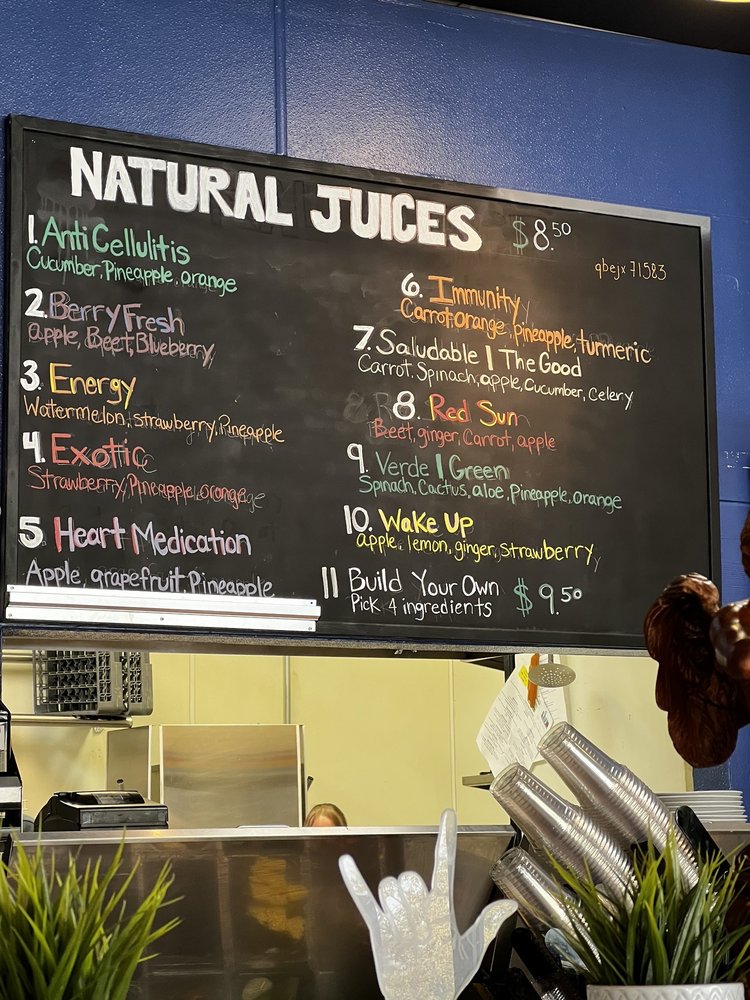 NATURAL JUICES $8.50
qbejx 71583
1. Anti Cellulitis
Cucumber, Pineapple, orange
2. Berry Fresh
apple, Beet, Blueberry
3. Energy
Watermelon, strawberry, Pineapple
4. Exotic
Strawberry, Pineapple, orange
5 Heart Medication
Apple, grapefruit, Pineapple
6. Immunity
Carrot orange, pineapple, turmeric
7. Saludable | The Good
Carrot, Spinach, apple, Cucumber, Celery
8. Red Sun
Beet, ginger, Carrot, apple
9. Verde | Green
Spinach, Cactus, aloe, Pineapple, orange
10. Wake Up
apple, lemon, ginger, strawberry
11 Build Your Own $9.50
Pick 4 ingredients